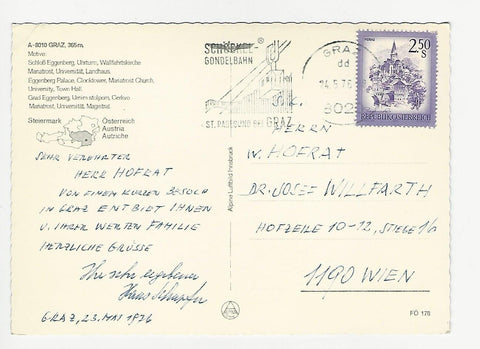 A-8010 GRAZ, 365m.
Motive:
Schloß Eggenberg, Uhrturm, Wallfahrtskirche
Mariatrost, Universität, Landhaus.
Eggenberg Palace, Clocktower, Mariatrost Church,
University, Town Hall.
Mariatrost, Universität, Magistrat
Steiermark
Österreich
Austria
Autriche
SEHR VEREHRTER
HERR HOFRAT
VON EINEM KURZEN BESUCH
IN GRAZ ENTBIET IHNEN
U. IHRER WERTEN FAMILIE
HERZLICHE GRÜSSE
Ihr sehr ergebener
Hans
GRAZ, 23. MAI 1976
Alpine Luftbild Innsbruck
SCHÖCKEL-
GONDELBAHN
ST. RADEGUND BEI GRAZ
GRAZ
dd
802
2,50 S
REPUBLIK ÖSTERREICH
HERRN
W. HOFRAT
DR. JOSEF WILLFARTH
1190 WIEN
FÖ 176